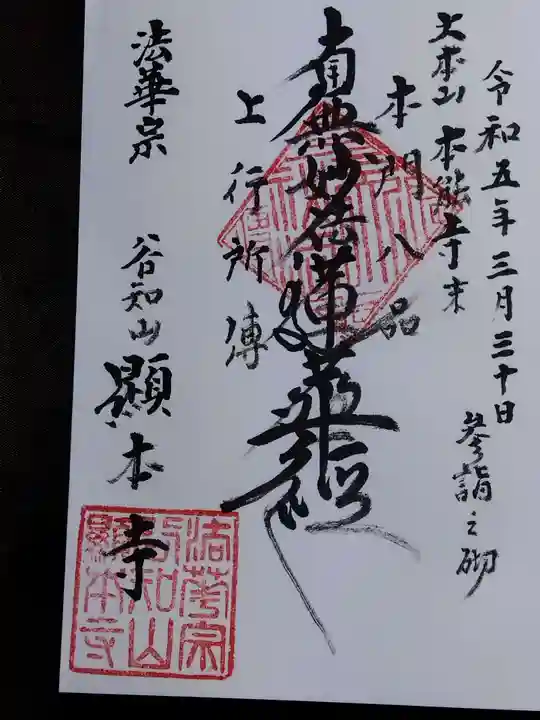 令和五年三月三十日
参詣之砌
大本山 本能寺末
本門八品
南無妙法蓮華経
上行所傳
法華宗 谷知山
顯本寺
法華宗
谷知山
顯本寺